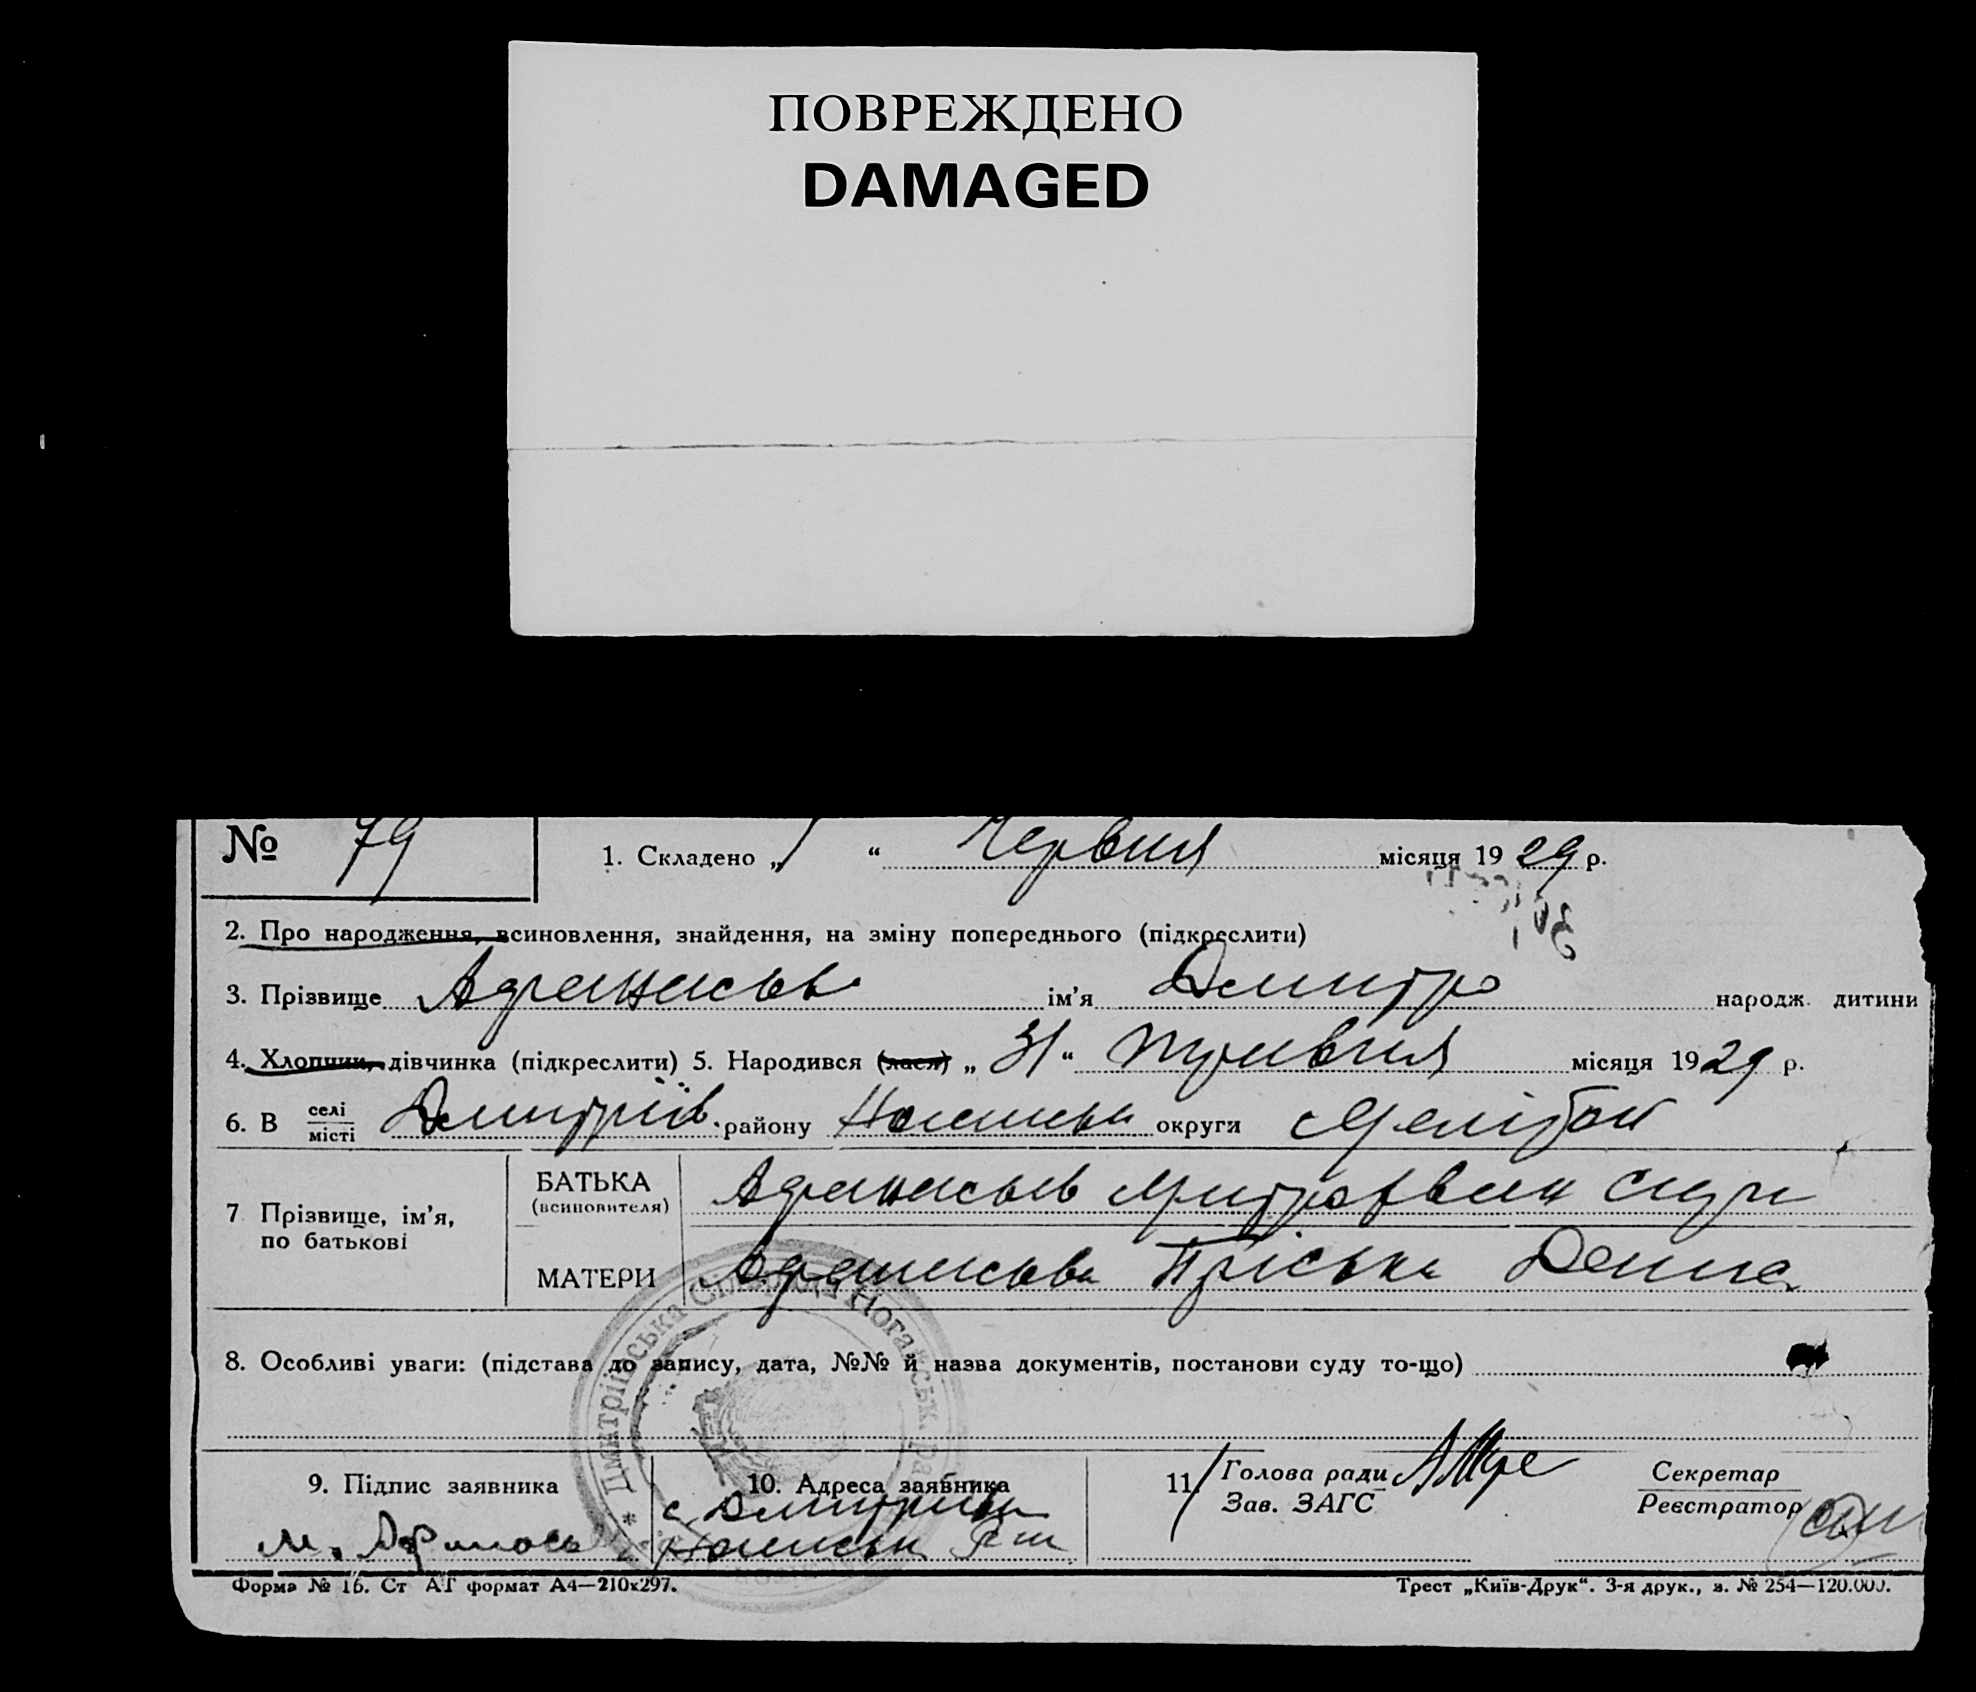 ПОВРЕЖДЕНО
DAMAGED
№ 79
1. Складено „ 1 “ Червня місяця 1929 р.
2. Про народження, всиновлення, знайдення, на зміну попереднього (підкреслити)
3. Прізвище Афанасьв ім'я Дмитро народж. дитини
4. Хлопчик, дівчинка (підкреслити) 5. Народився (лася) „ 31 “ Травня місяця 1929 р.
6. В селі місті Дмитріїв. району округи Мелітоп
7 Прізвище, ім'я, по батькові
БАТЬКА (всиновителя) Афанасьів
МАТЕРИ Афанасьва Пріська Дениc
8. Особливі уваги: (підстава до запису, дата, №№ й назва документів, постанови суду то-що)
Дмитріївська Сільрада Ногайськ. Ра
9. Підпис заявника
М. Афанась
10. Адреса заявника
с.
11. Голова ради
Зав. ЗАГС
Секретар
Реєстратор
Форма № 16. Ст АГ формат А4—210х297.
Трест „Київ-Друк“. 3-я друк., з. № 254—120.000.